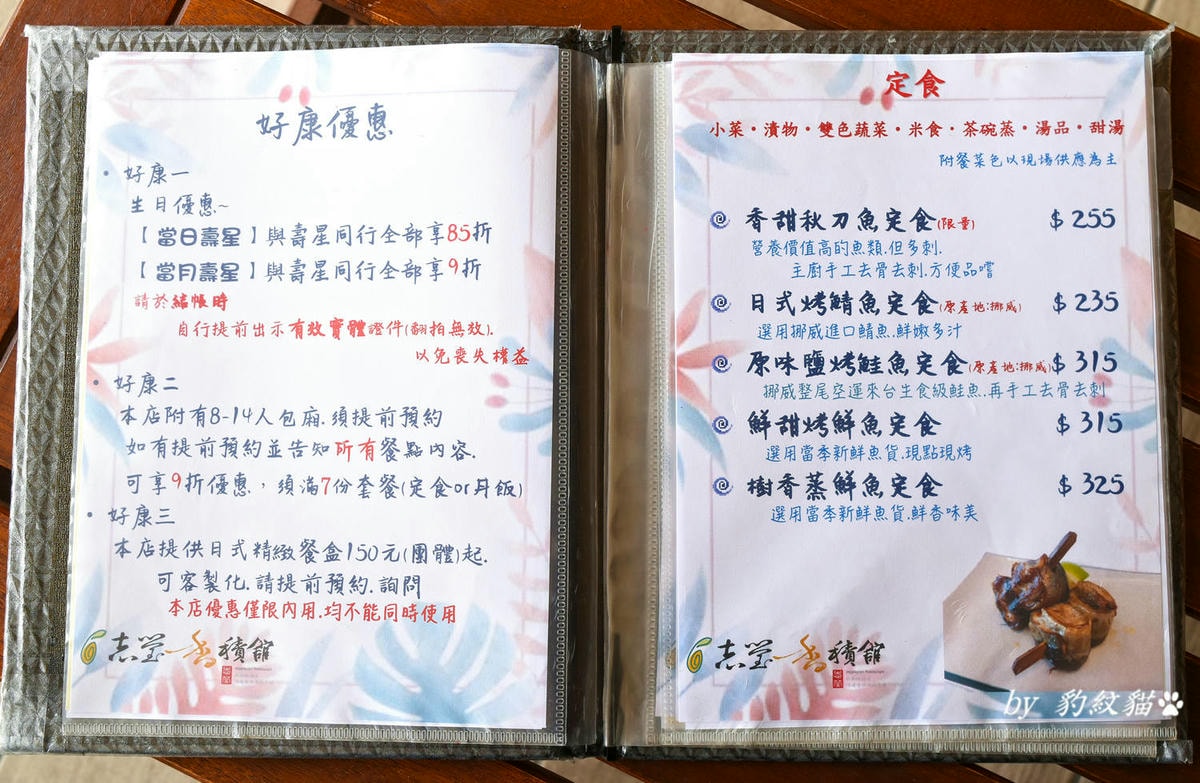 好康優惠
• 好康一
生日優惠~
【當日壽星】與壽星同行全部享85折
【當月壽星】與壽星同行全部享9折
請於結帳時
自行提前出示有效實體證件(翻拍無效).
以免喪失權益
• 好康二
本店附有8-14人包廂.須提前預約
如有提前預約並告知所有餐點內容.
可享9折優惠，須滿7份套餐(定食or丼飯)
• 好康三
本店提供日式精緻餐盒150元(團體)起.
可客製化.請提前預約.詢問
本店優惠僅限內用.均不能同時使用
志瑩香積館
定食
小菜・漬物・雙色蔬菜・米食・茶碗蒸・湯品・甜湯
附餐菜色以現場供應為主
香甜秋刀魚定食(限量) $ 255
營養價值高的魚類.但多刺.
主廚手工去骨去刺.方便品嚐
日式烤鯖魚定食(原產地:挪威) $ 235
選用挪威進口鯖魚.鮮嫩多汁
原味鹽烤鮭魚定食(原產地:挪威) $ 315
挪威整尾空運來台生食級鮭魚.再手工去骨去刺
鮮甜烤鮮魚定食 $ 315
選用當季新鮮魚貨.現點現烤
樹香蒸鮮魚定食 $ 325
選用當季新鮮魚貨.鮮香味美
志瑩香積館
by 豹紋貓